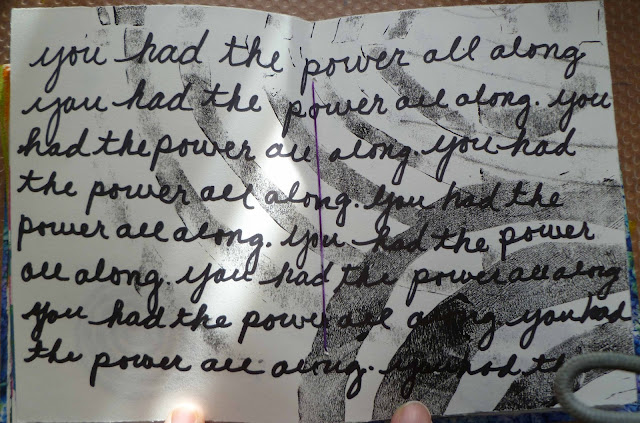 you had the power all along
you had the power all along. you
had the power all along. you had
the power all along. you had the
power all along. you had the power
all along. you had the power all along
you had the power all along. you had
the power all along. you had th